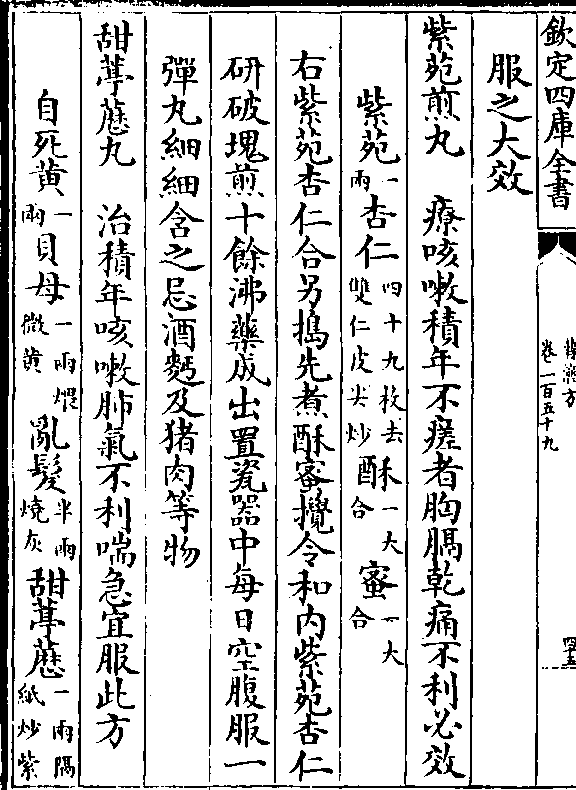 欽定四庫全書
普濟方
卷一百五十九
服之大效
紫菀煎丸 療咳嗽積年不瘥者胸膈乾痛不利必效
紫菀一兩 杏仁四十九枚去雙仁皮尖炒 酥一大合 蜜一大合
右紫菀杏仁合另搗先煮酥蜜攪令和內紫菀杏仁
研破塊煎十餘沸藥成出置瓷器中每日空腹服一
彈丸細細含之忌酒麪及猪肉等物
甜葶藶丸 治積年咳嗽肺氣不利喘急宜服此方
自死黄一兩 貝母一兩煨微黄 亂髮半兩燒灰 甜葶藶一兩隔紙炒紫